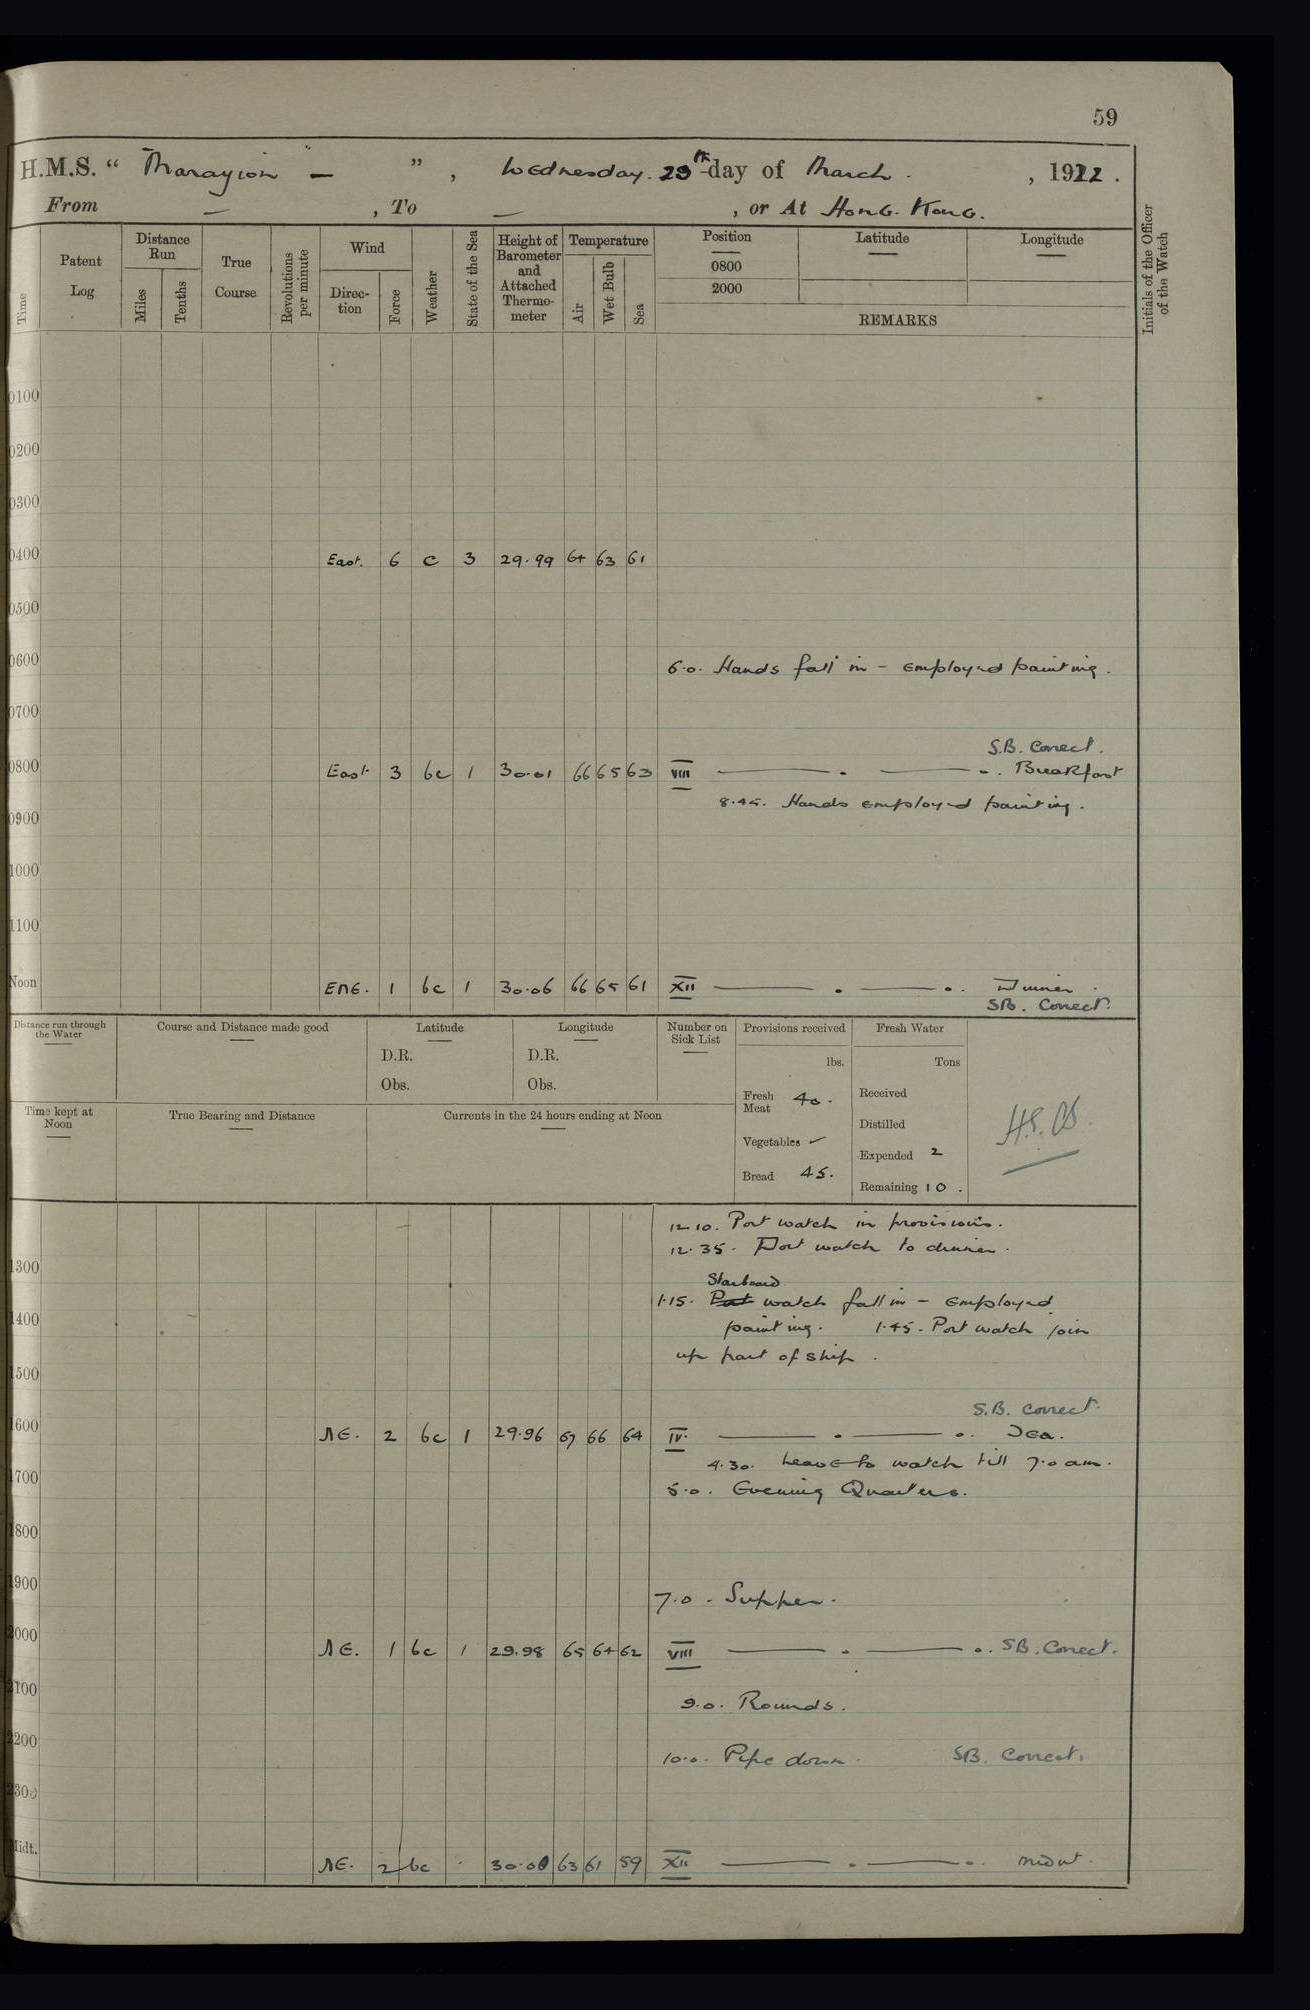 59
H.M.S. “ Marazion – ” , Wednesday. 29th day of March . , 1922 .
From – , To – , or At Hong. Kong.
Time
Patent Log
Distance Run
Miles
Tenths
True Course
Revolutions per minute
Wind
Direction
Force
Weather
State of the Sea
Height of Barometer and Attached Thermometer
Temperature
Air
Wet Bulb
Sea
Position
0800
2000
Latitude
Longitude
REMARKS
Initials of the Officer of the Watch
0100
0200
0300
0400 East. 6 c 3 29.99 64 63 61
0500
0600 6.0. Hands fall in – employed painting.
0700
S.B. Correct.
0800 East. 3 bc 1 30.01 66 65 63 VIII Breakfast
8.45. Hands employed painting.
0900
1000
1100
Noon ENE. 1 bc 1 30.06 66 65 61 XII Dinner .
SB. Correct.
Distance run through the Water
Course and Distance made good
Latitude
D.R.
Obs.
Longitude
D.R.
Obs.
Number on Sick List
Provisions received
lbs.
Fresh Meat 40.
Vegetables ✓
Bread 45.
Fresh Water
Tons
Received
Distilled
Expended 2
Remaining 10 .
Time kept at Noon
True Bearing and Distance
Currents in the 24 hours ending at Noon
12.10. Port watch in provisions.
12.35. Port watch to dinner.
1300
Starboard
1.15. Port watch fall in – employed
1400 painting. 1.45. Port watch join
up part of ship .
1500
S.B. correct.
1600 NE. 2 bc 1 29.96 67 66 64 IV. Tea.
4.30. Leave to watch till 7.0 am.
1700 5.0. Evening Quarters.
1800
1900 7.0. Supper.
2000 NE. 1 bc 1 29.98 65 64 62 VIII SB. Correct.
2100 9.0. Rounds.
2200 10.0. Pipe down. SB. Correct.
2300
Midt. NE. 2 bc . 30.00 63 61 59 XII Midnt.